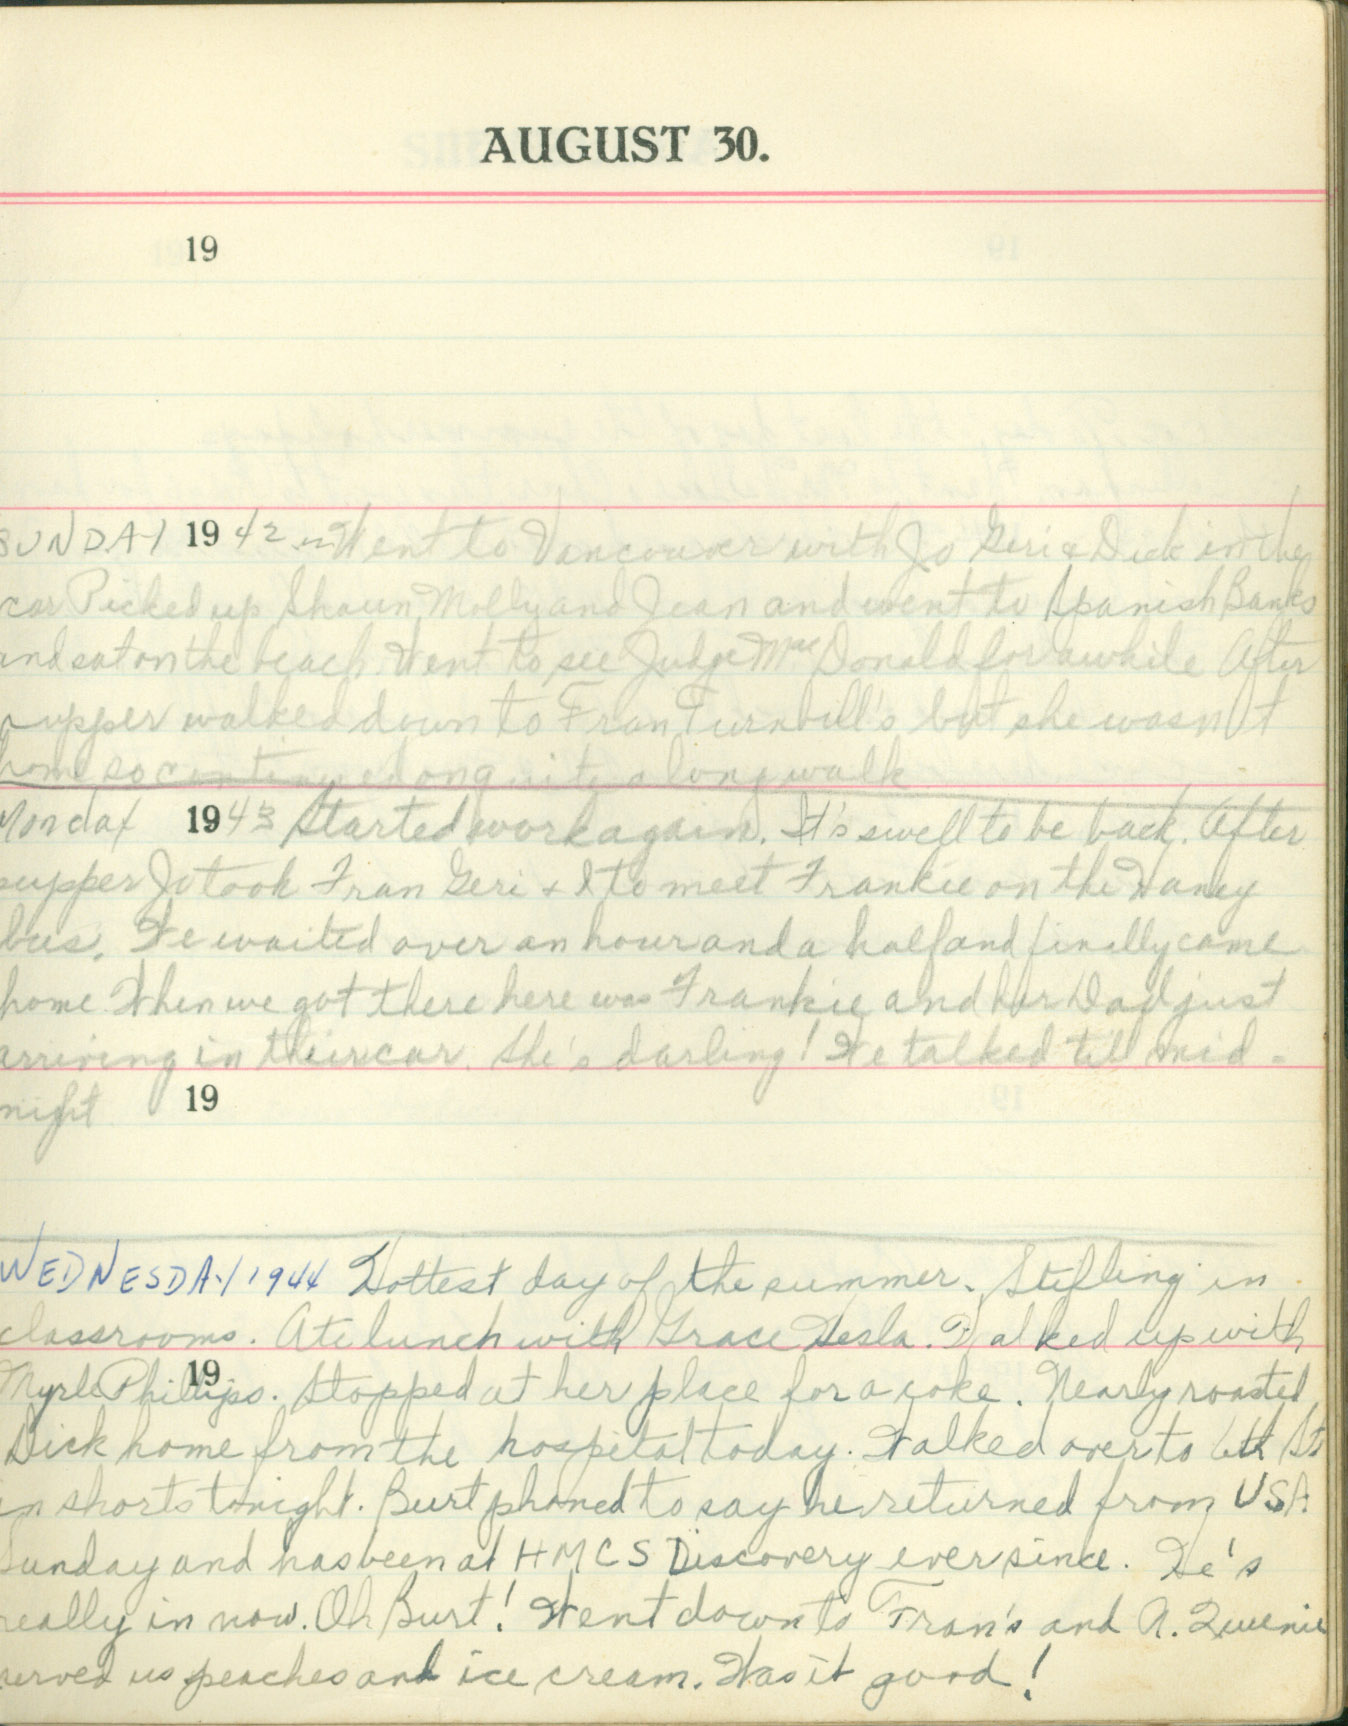 AUGUST 30.
19
SUNDAY 1942 Went to Vancouver with Jo Geri & Dick in the
car Picked up Shaun Molly and Jean and went to Spanish Banks
and sat on the beach. Went to see Judge MacDonald for awhile After
supper walked down to Fran Turnbill's but she wasn't
home so continued on quite a long walk
Monday 1943 Started work again. It's swell to be back. After
supper Jo took Fran Geri & I to meet Frankie on the Haney
bus. We waited over an hour and a half and finally came
home. When we got there here was Frankie and her Dad just
arriving in their car. She's darling! We talked till mid-
night
19
WEDNESDAY 1944 Hottest day of the summer. Stifling in
classrooms. Ate lunch with Grace Hesla. Walked up with
19
Myrle Phillips. Stopped at her place for a coke. Nearly roasted
Dick home from the hospital today. Walked over to 6th St
in shorts tonight. Burt phoned to say he returned from USA
Sunday and has been at HMCS Discovery ever since. He's
really in now. Oh Burt! Went down to Fran's and A. Queenie
served us peaches and ice cream. Was it good!